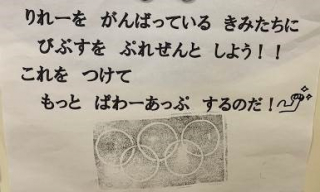 りれーを がんばっている きみたちに
びぶすを ぷれぜんと しよう！！
これを つけて
もっと ぱわーあっぷ するのだ！